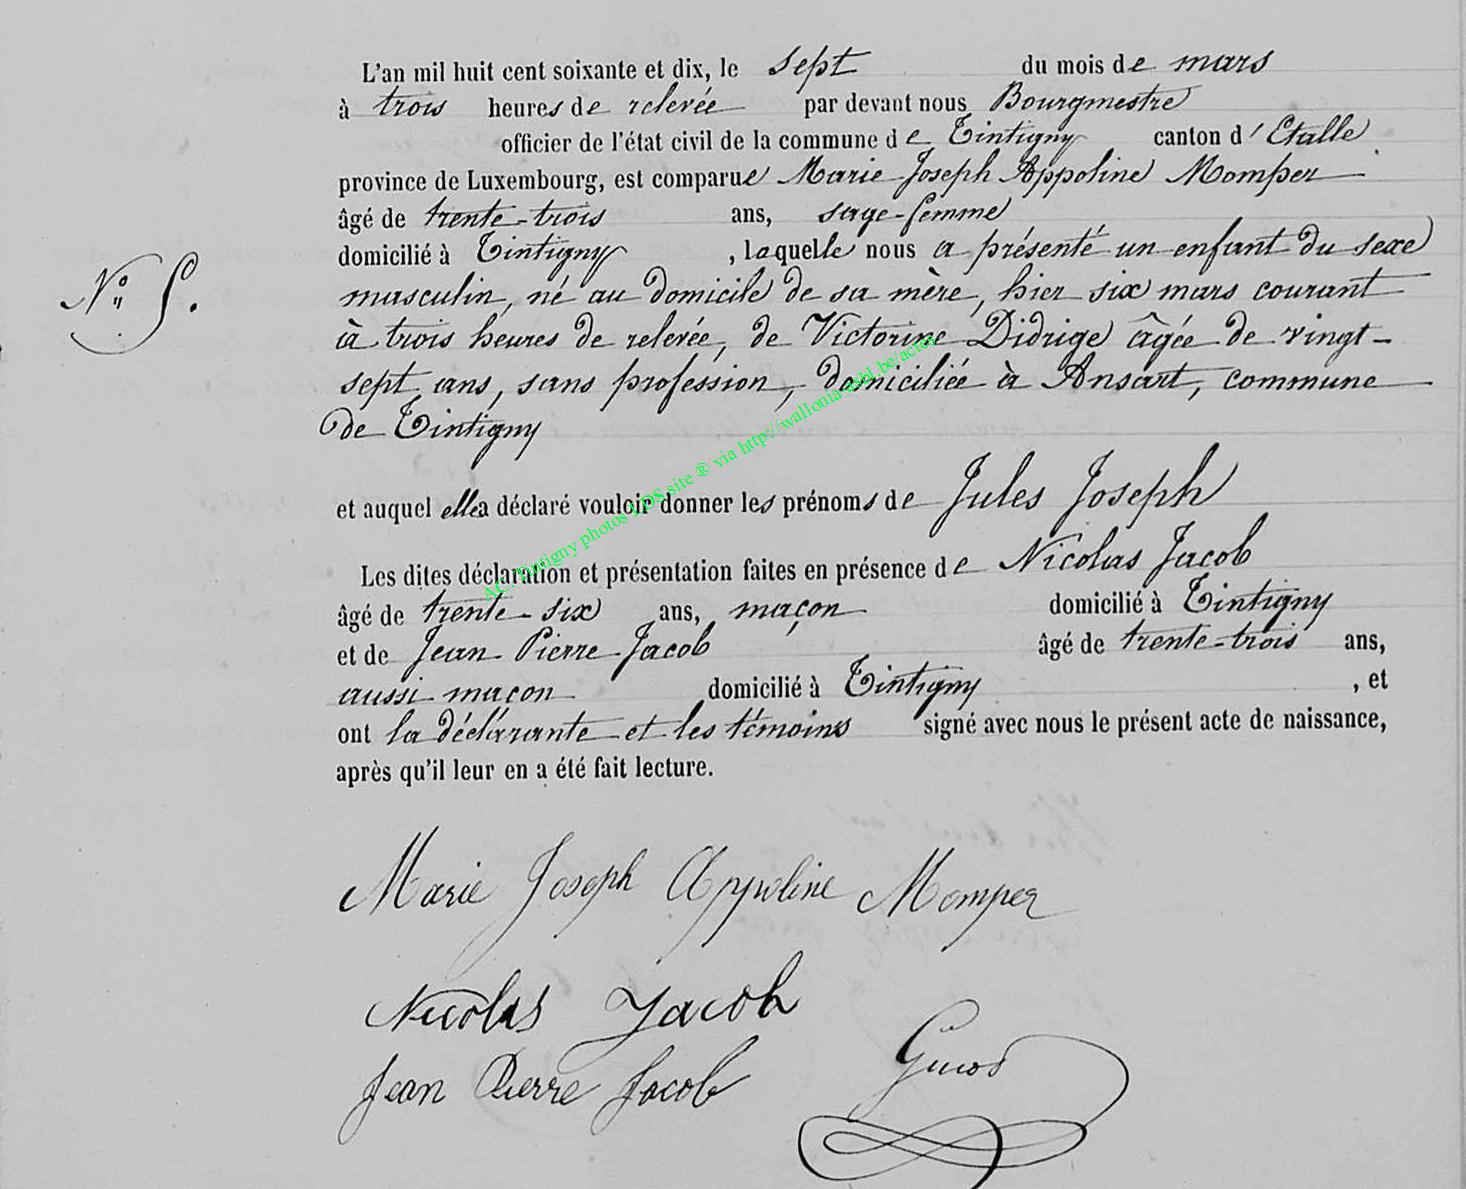 L'an mil huit cent soixante et dix, le sept du mois de mars
à trois heures de relevée par devant nous Bourgmestre
officier de l'état civil de la commune de Tintigny canton d'Etalle
province de Luxembourg, est comparue Marie Joseph Appoline Momper
âgé de trente-trois ans, sage-femme
domicilié à Tintigny, laquelle nous a présenté un enfant du sexe
N° 5.
masculin, né au domicile de sa mère, hier six mars courant
à trois heures de relevée, de Victorine Didrige âgée de vingt-
sept ans, sans profession, domiciliée à Ansart, commune
de Tintigny
et auquel elle a déclaré vouloir donner les prénoms de Jules Joseph
Les dites déclaration et présentation faites en présence de Nicolas Jacob
âgé de trente-six ans, maçon domicilié à Tintigny
et de Jean Pierre Jacob âgé de trente-trois ans,
aussi maçon domicilié à Tintigny, et
ont la déclarante et les témoins signé avec nous le présent acte de naissance,
après qu'il leur en a été fait lecture.
Marie Joseph Appoline Momper
Nicolas Jacob
Jean Pierre Jacob
AC. Tintigny photos LDS site ® via http://wallonia-asbl.be/actes